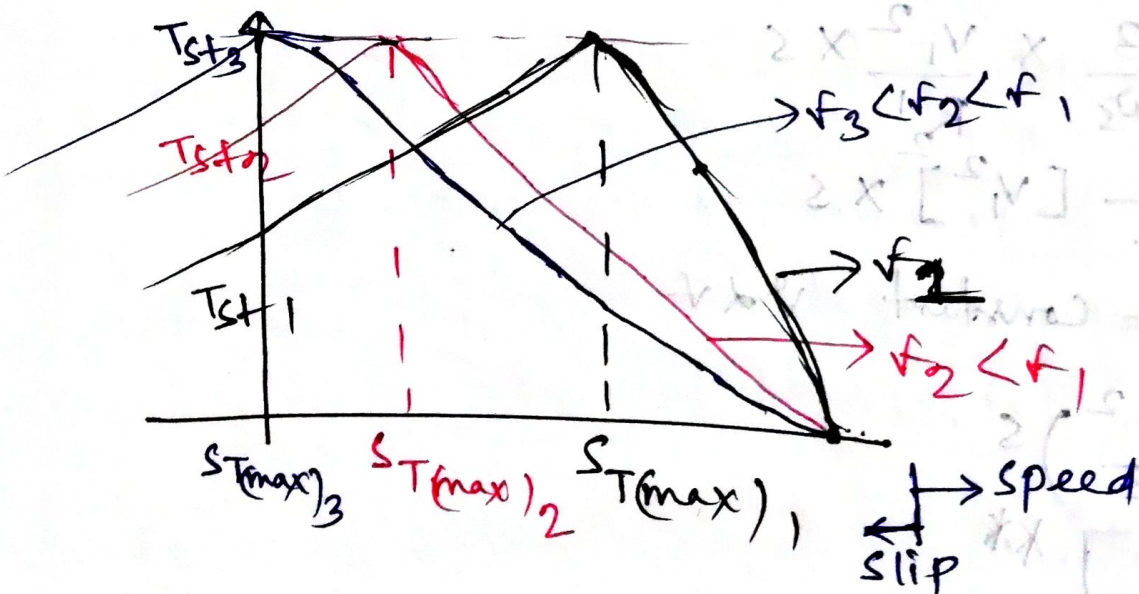 T st3
T st2
T st1
f3 < f2 < f1
f1
f2 < f1
S T(max)3
S T(max)2
S T(max)1
speed
slip